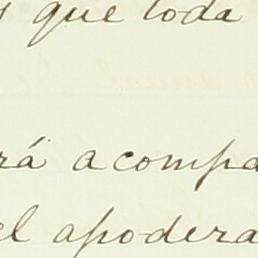 s que toda
rá acompa
el apodera